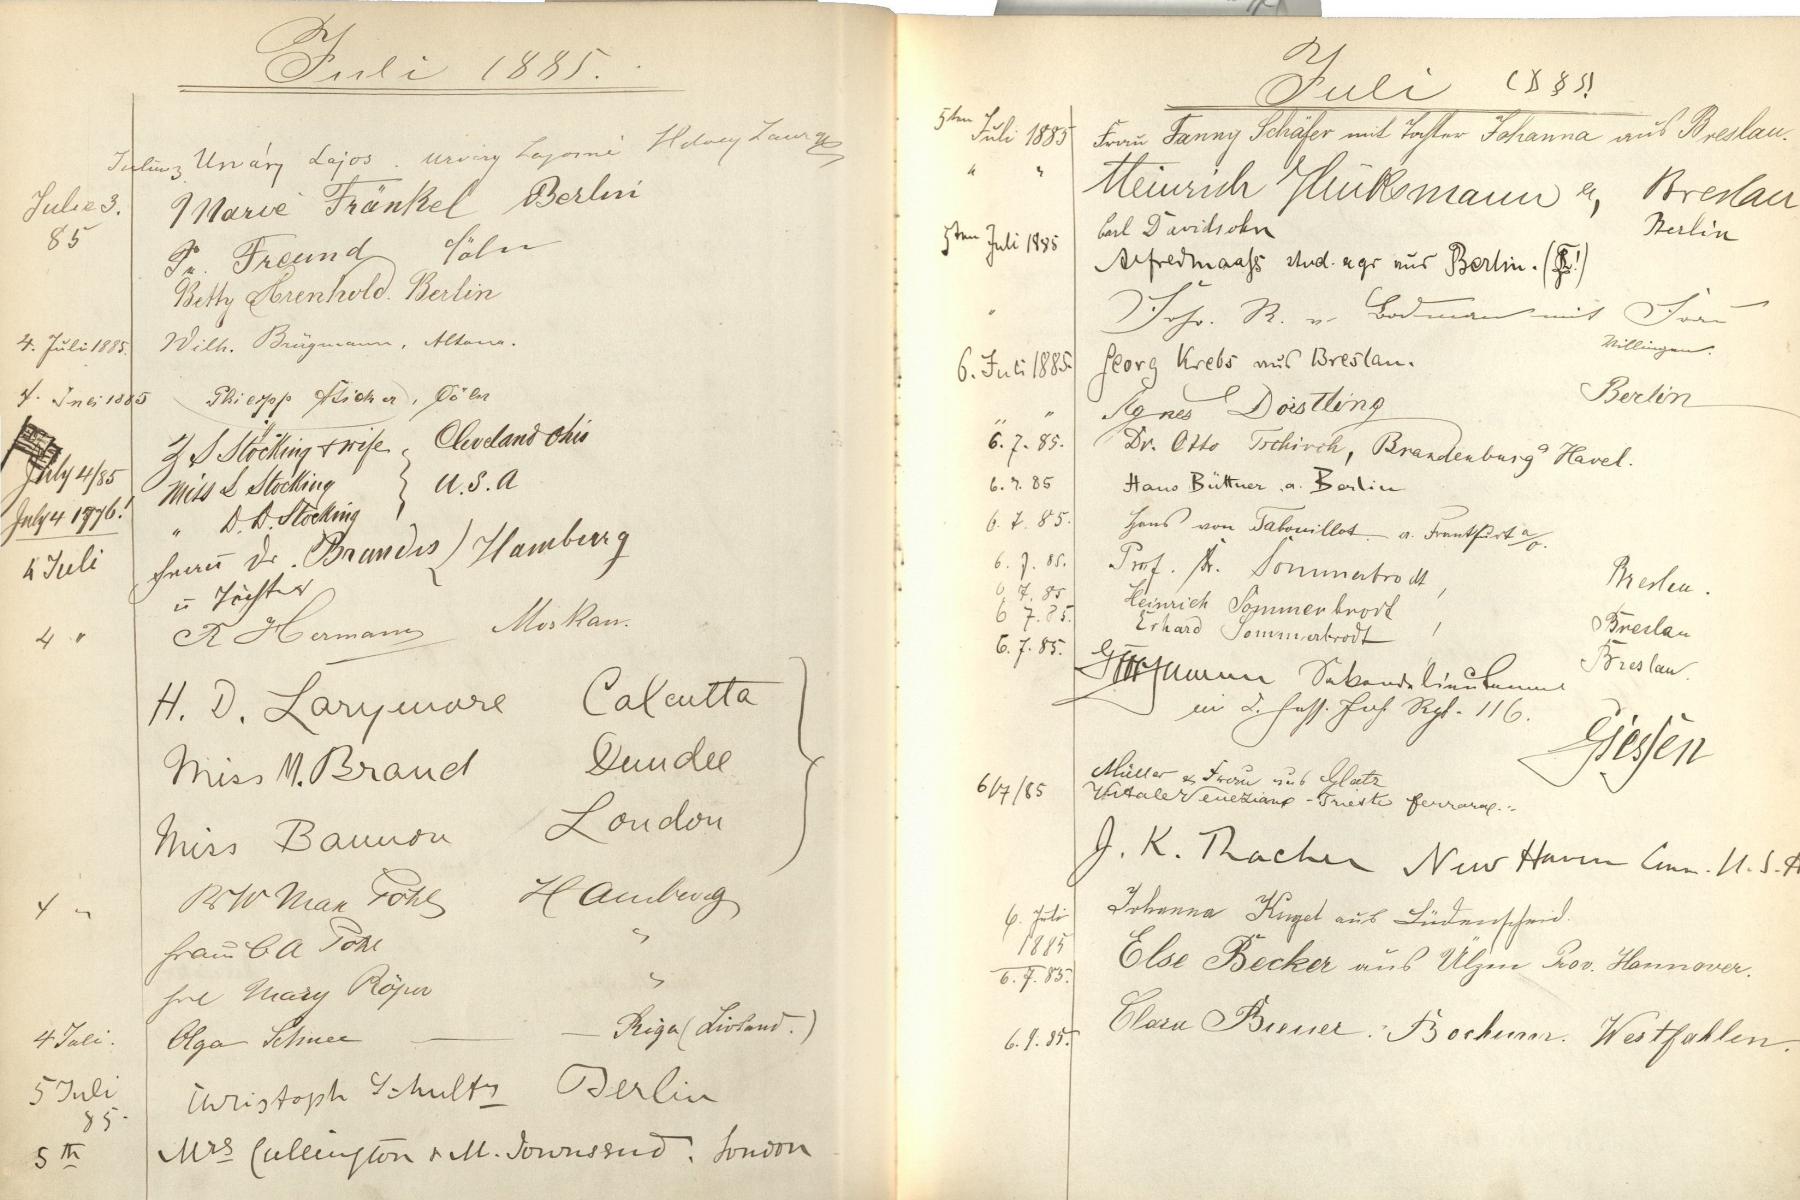 Juli 1885.
Urváry Lajos.
Julie 3. Marie Fränkel Berlin
85
Fr. Freund Cöln
Betty Arenhold. Berlin
4. Juli 1885. Wilh. Brügmann, Altona.
4. Juli 1885 Cöln
July 4/85 Z S Stocking & wife Cleveland Ohio
Miss L Stocking U.S.A
July 4 1776! " D. D. Stocking
4 Juli Frau Dr. Brandis Hamburg
u Töchter
4 " R Hermann Moskau.
H. D. Larymore Calcutta
Miss M. Brand Dundee
Miss Bannon London
4 " Max Pohl Hamburg
Frau C A Pohl "
Frl Mary Röper "
4 Juli. Olga Schnee — Riga (Livland.)
5 Juli Christoph Schultz Berlin
85.
5th Mrs Cullington & M. Townsend. London
Juli (1885!)
5ten Juli 1885 Frau Fanny Schäfer mit Tochter Johanna aus Breslau.
" " Heinrich Glücksmann a, Breslau
Carl Davidsohn Berlin
5ten Juli 1885 Alfred Maaß stud. agr aus Berlin.
" Frhr. R. v. Bodman mit Frau
Villingen.
6. Juli 1885. Georg Krebs aus Breslau.
" " Agnes Doistling Berlin
6.7.85. Dr. Otto Tschirch, Brandenburg a Havel.
6.7.85 Hans Büttner a. Berlin
6.7.85. Hans von Tabouillot a. Frankfurt a/O.
6.7.85. Prof. Dr. Sommerbrodt, Breslau.
6.7.85 Heinrich Sommerbrodt Breslau
6 7.85. Erhard Sommerbrodt Breslau.
6.7.85. Sekondelieutenant
im 2. Hess. Inf. Rgt. 116. Giessen
Müller & Frau aus Glatz
6/7/85 Vitale Veneziani - Trieste ferrara
J. K. Thacher New Haven Conn. U.S.A
6. Juli Johanna Kugel aus Lüdenscheid.
1885
6.7.85. Else Becker aus Ülzen Prov. Hannover.
6.7.85. Clara Buner. Bochum. Westfahlen.